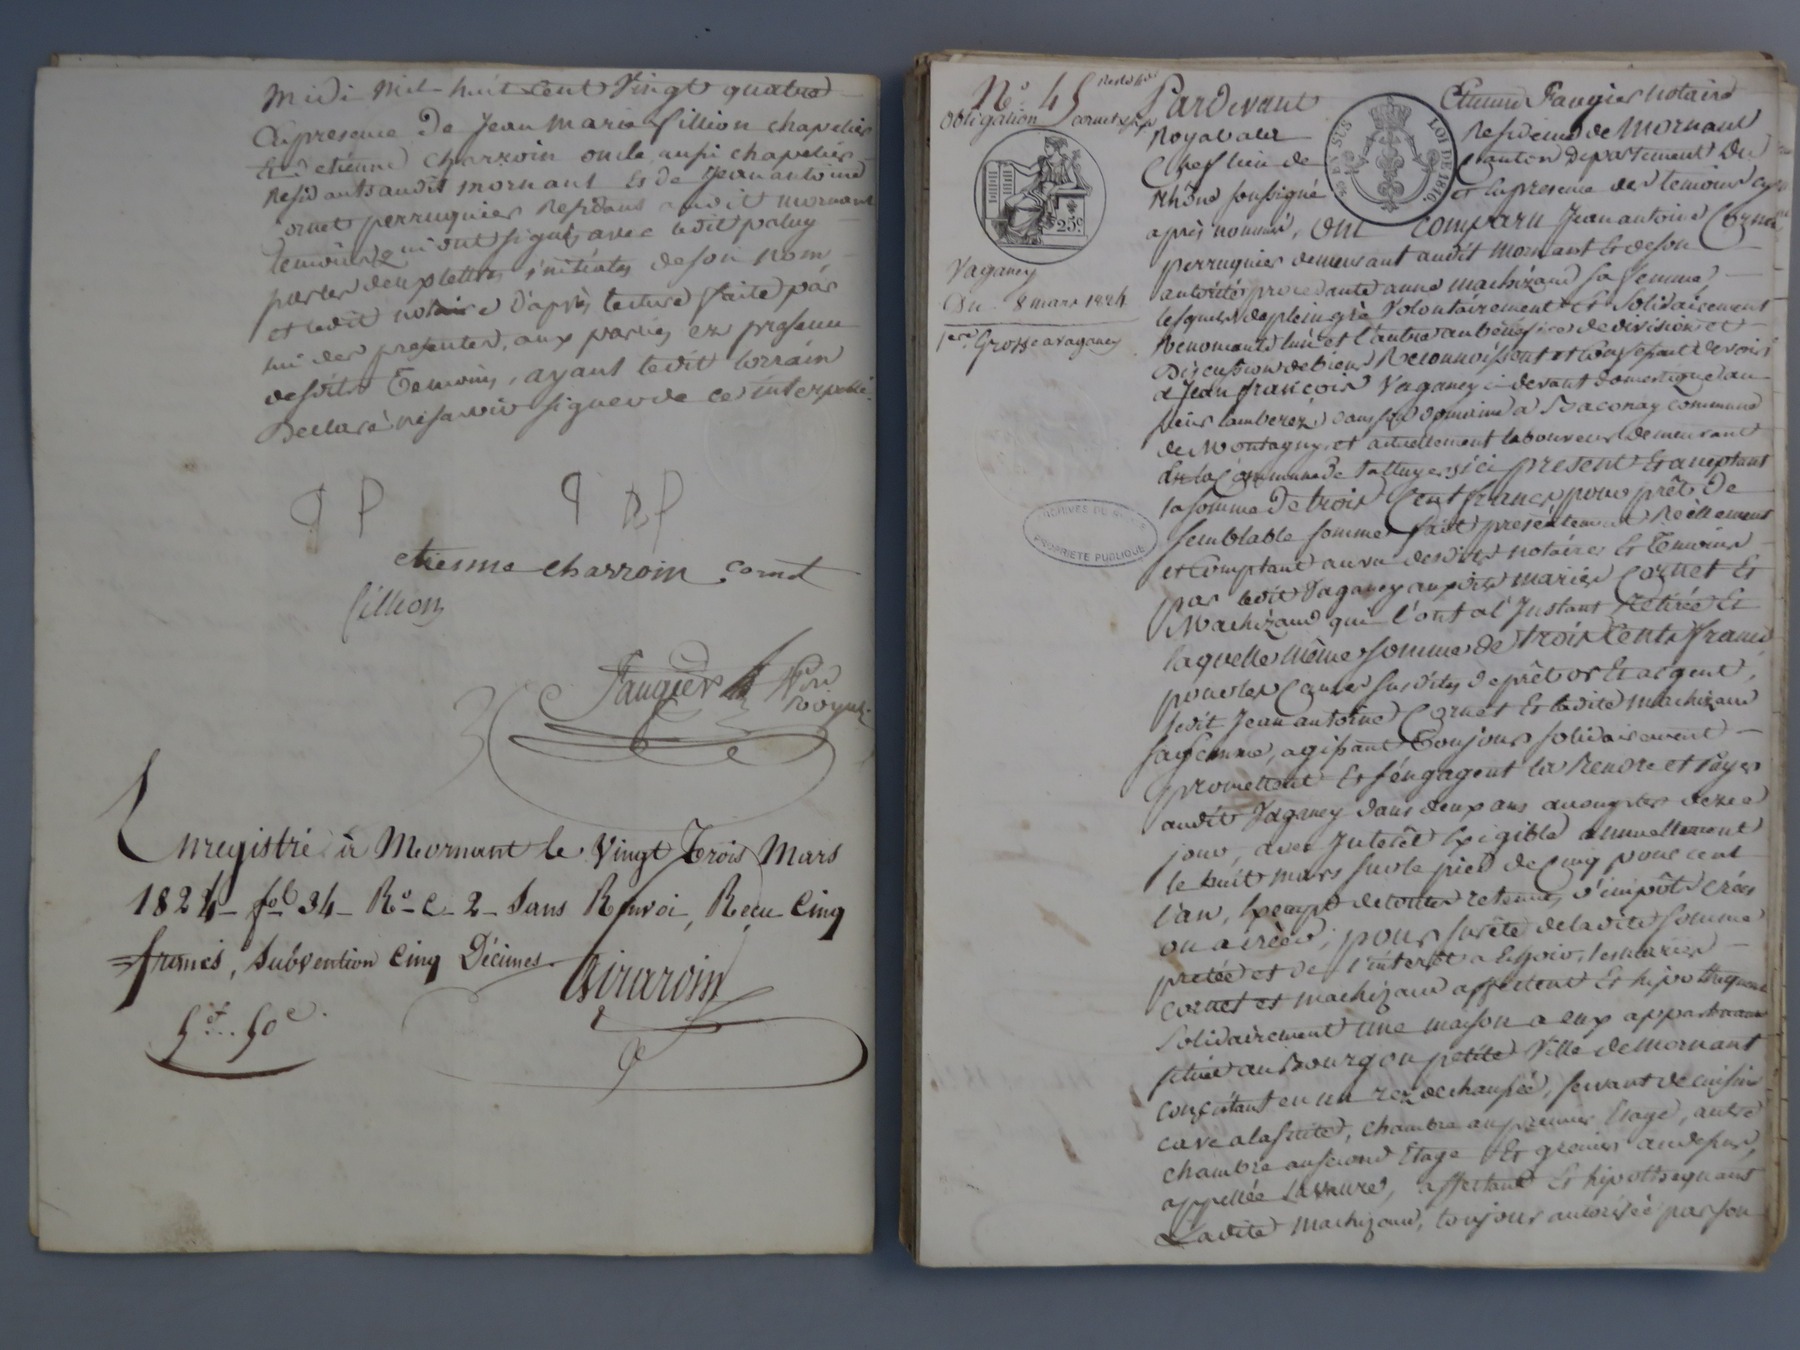 midi mil huit cent vingt quatre
En presence de Jean Marie fillion chapelier
Et d'etienne charroin oncle aussi chapelier
Residants audit mornant Et de Jean antoine
Cornet perruquier Residant audit mornant
temoins qui ont signé avec ledit
par les deux lettres initiales de son nom
et ledit notaire d'après lecture faite par
lui des presentes, aux parties en presence
desdits temoins, ayant ledit lorrain
Declaré ne savoir signer de ce interpellé.
etienne charroin cornet
fillion
Faugier Nre
royal
Enregistré à Mornant le Vingt Trois Mars
1824 fol 34 Ro C 2 Sans Renvoi, Reçu Cinq
francs, Subvention Cinq Décimes.
Girardin
5f.. 50c.
No 45
obligation cornet
25c
EN SUS
LOI DE 1816
Vaganey
Du 8 mars 1824
1ere Grosse a vaganey
ARCHIVES DU RHONE
PROPRIETE PUBLIQUE
Pardevant Etienne Faugier notaire
Royal a la Residence de Mornant
Chef lieu de Canton departement Du
Rhône soussigné et En presence des temoins cy
après nommés, Ont comparu Jean antoine Cornet
perruquier demeurant audit mornant Et de son
autorité procedante anne machizaud sa femme,
lesquels de plein gré Volontairement Et Solidairement
Renonçant l'un et l'autre au bénéfice de division et
Discussion de biens Reconnoissent et Confessent devoir
a Jean françois Vaganey ci devant domestique au
sieur lamberez dans son domaine a Baconay commune
de Montagny, et actuellement laboureur demeurant
En la Commune de taluyers ici present Et acceptant
la somme De trois Cent francs, pour prêt de
semblable somme fait presentement Réellement
et Comptant au vu desdits notaire Et temoins
par ledit Vaganey auxdits mariés Cornet Et
Machizaud qui l'ont a l'Instant Retirée Et
laquelle même somme de trois Cents francs
pour les Causes susdites de prêt or Et argent,
ledit Jean antoine Cornet Et ladite machizaud
sa femme, agissant Toujours solidairement
promettent Et s'engagent la Rendre et payer
audit Vaganey dans deux ans a compter de ce
jour, avec Interêt Exigible annuellement
le huit mars sur le pied de Cinq pour cent
l'an, Exempt de toutes retenues d'impôts créés
ou a créer; pour sureté de ladite somme
pretée et de l'interêt a Echoir, les mariés
cornet et machizaud affectent Et hipothequent
Solidairement une maison a eux appartenant
située au Bourg ou petite Ville de Mornant
consistant en un rez de chaussée, servant de cuisine
cave a la suite, chambre au premier Etage, autre
chambre au second Etage Et grenier au dessus,
appellée, affectant Et hipothequant
Ladite machizaud, toujours autorisée par son